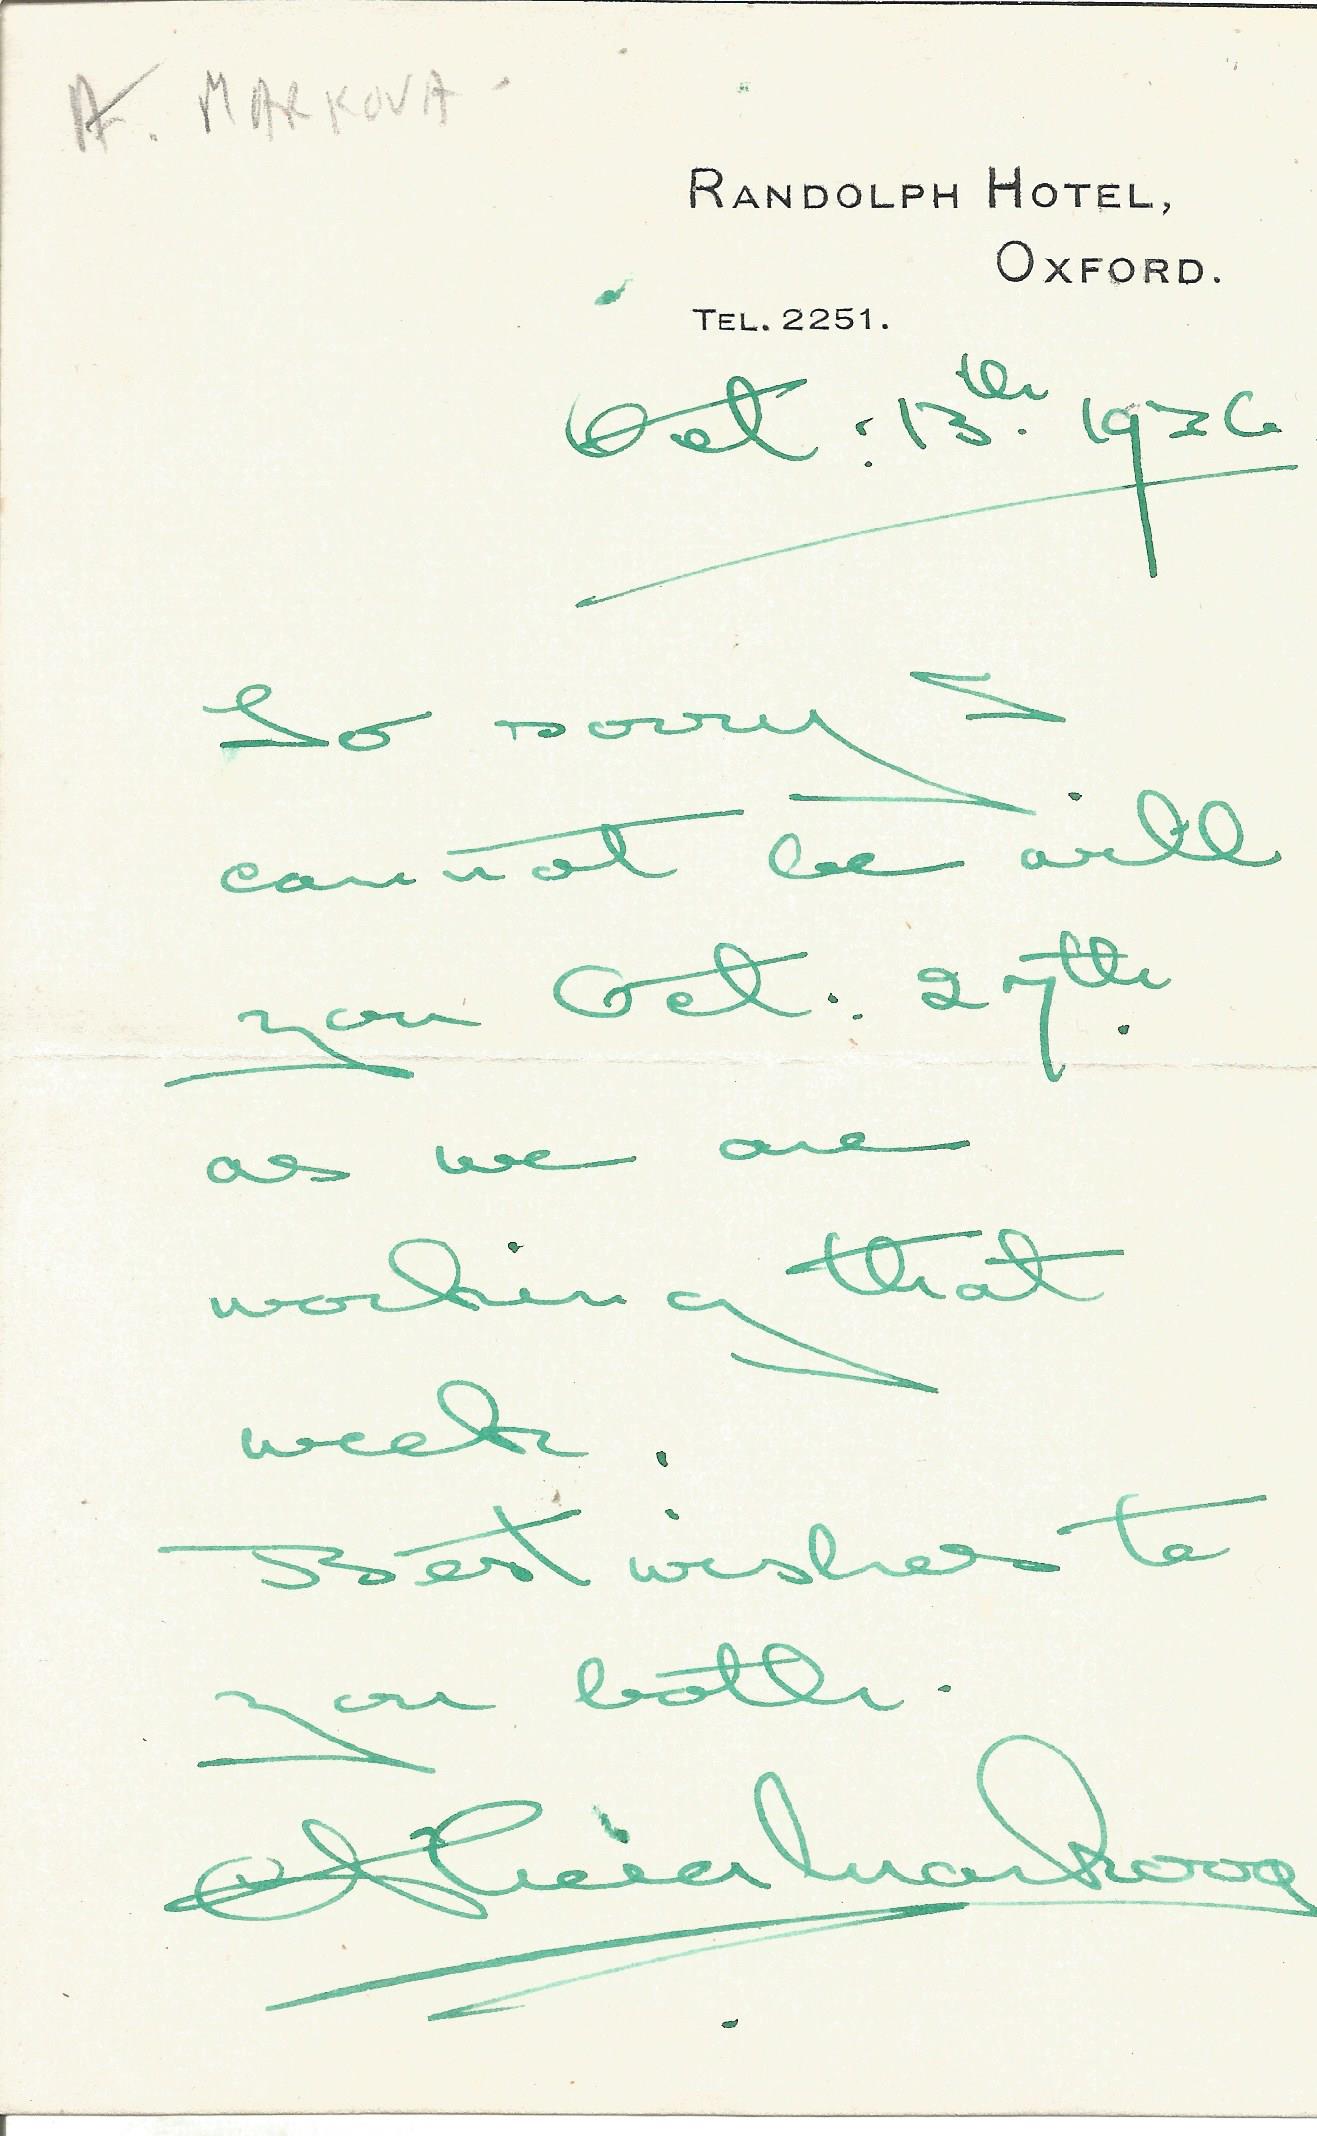 A. MARKOVA
RANDOLPH HOTEL,
OXFORD.
TEL. 2251.
Oct: 13th. 1936
So sorry I
cannot be with
you Oct: 27th.
as we are
working that
week.
Best wishes to
you both.
Alicia Markova